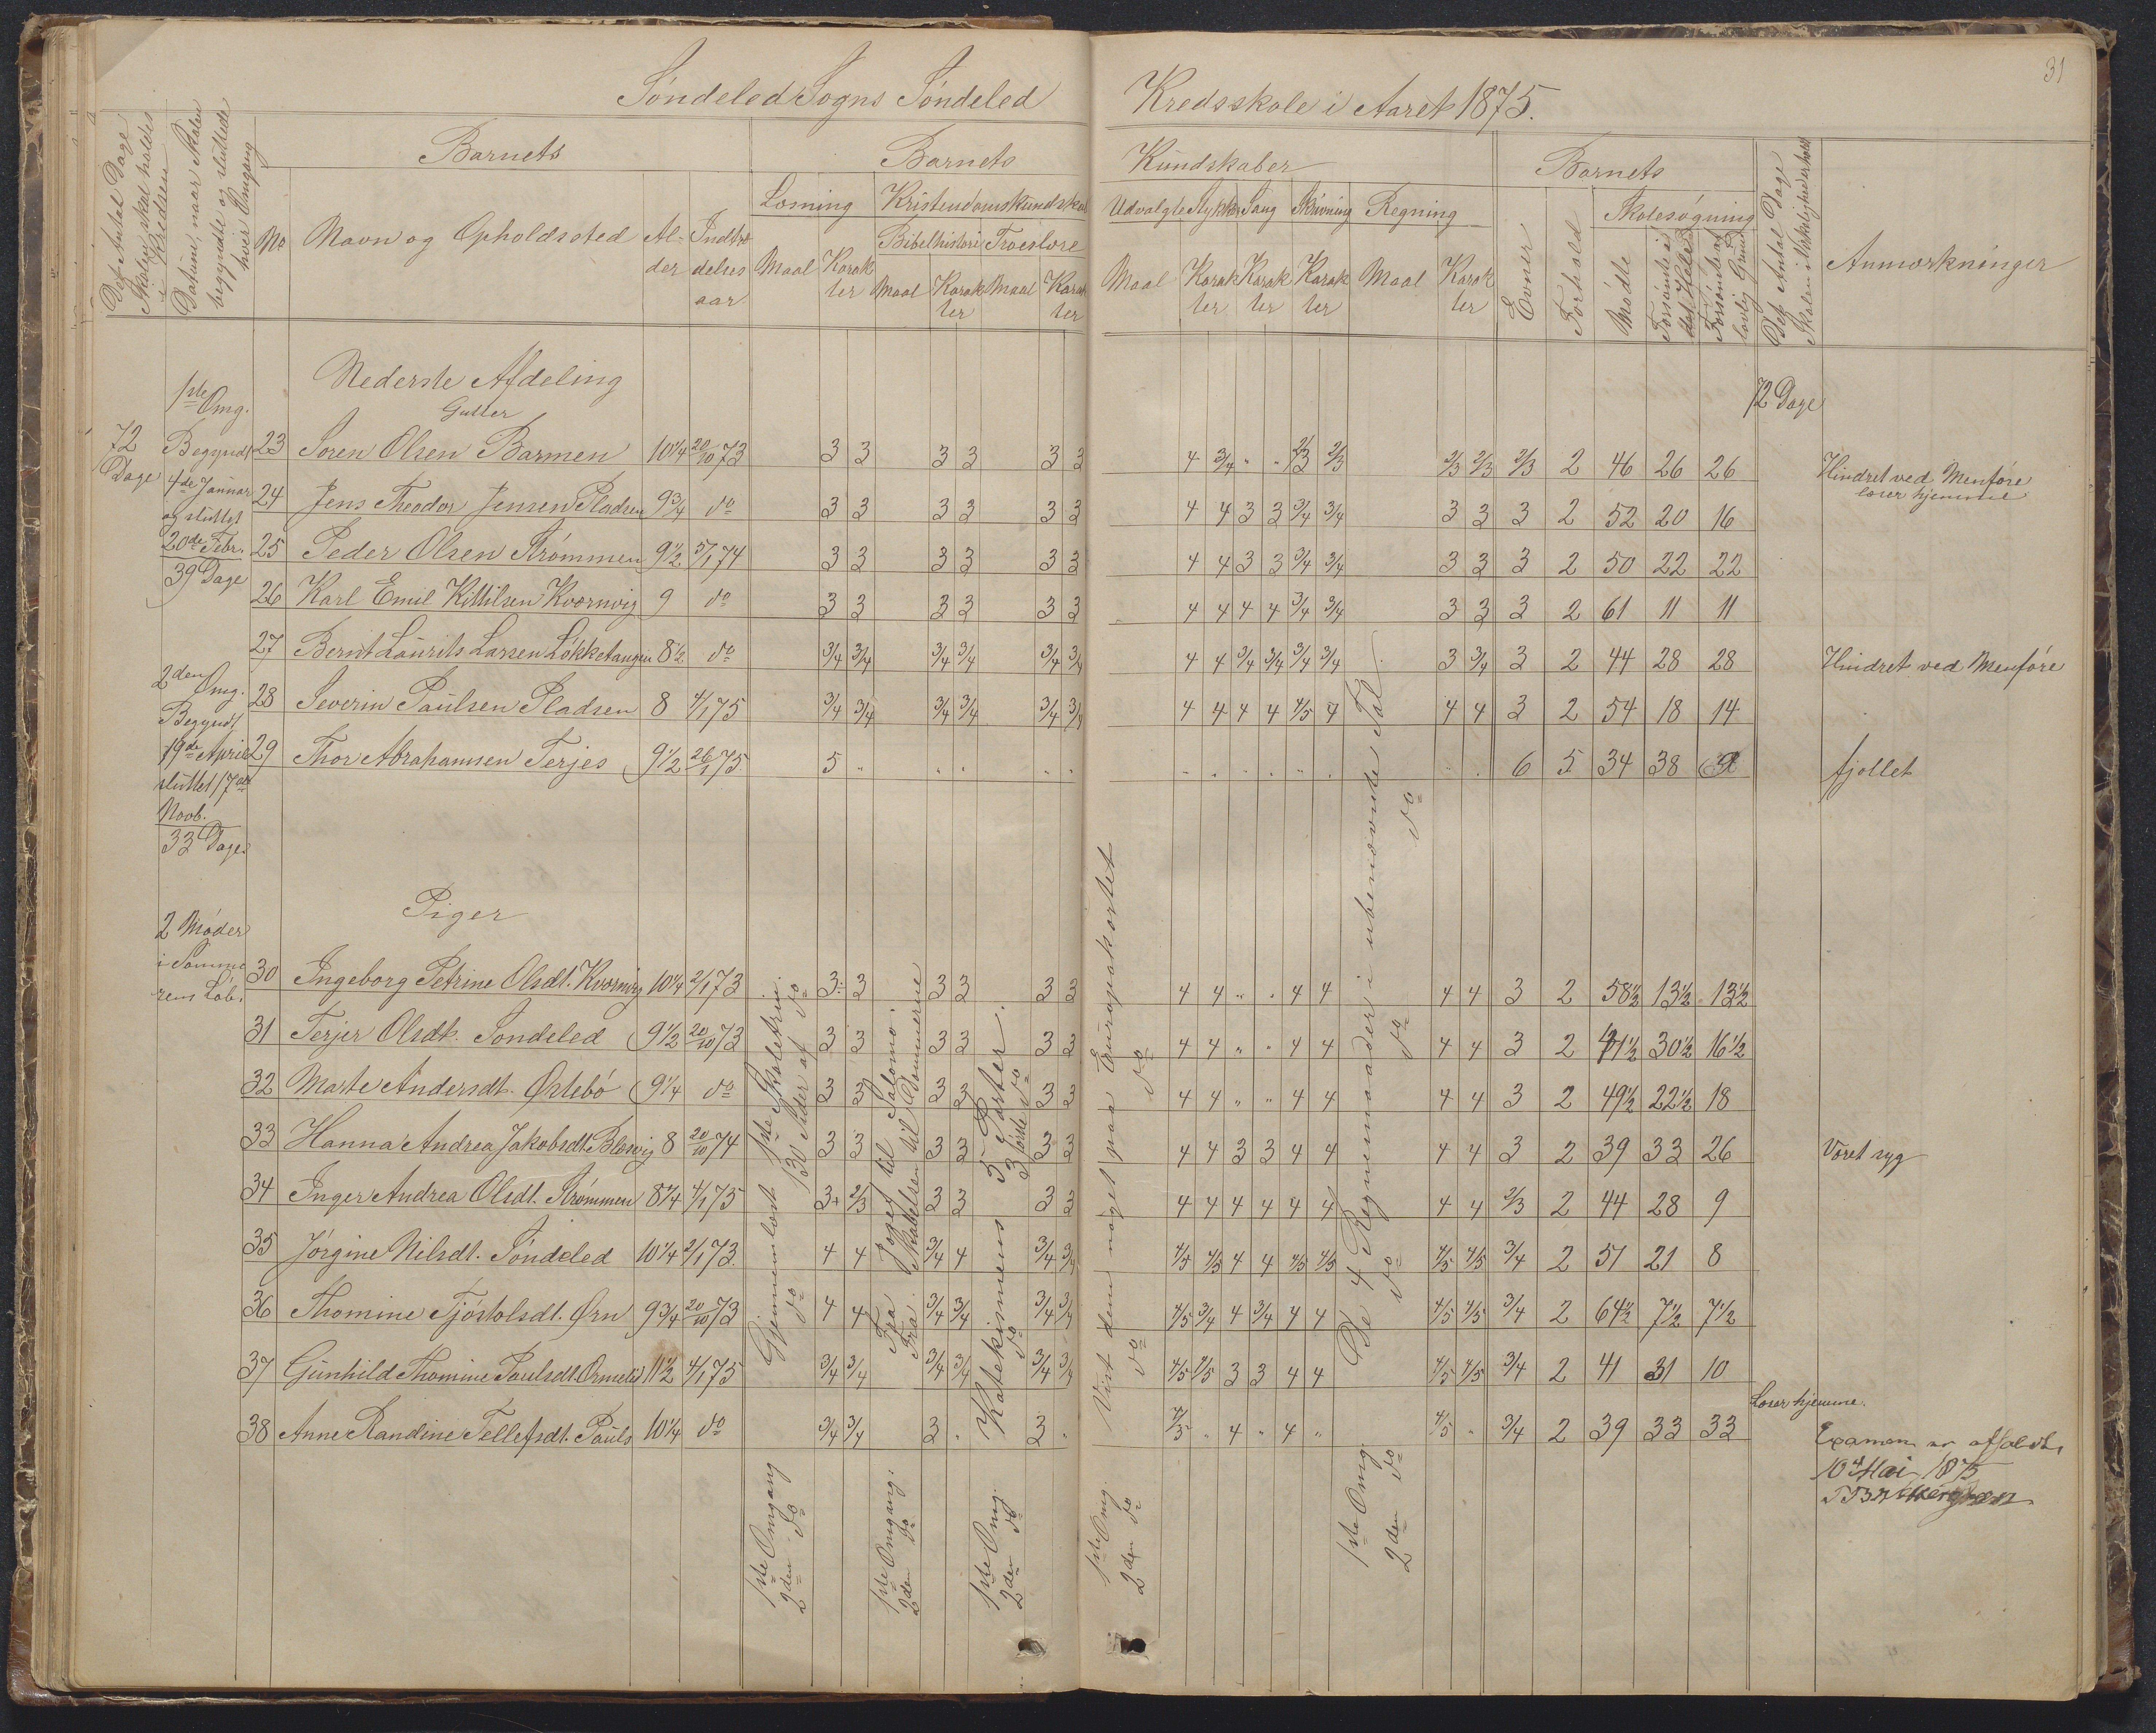 31
Søndeled Sogns Søndeled Kredsskole i Aaret 1875.
Det Antal Dage Skolen skal holdes i Kredsen
Datum, naar Skolen begyndte og sluttede hver Omgang
Barnets
No
Navn og Opholdssted
Alder
Indtrædelsesaar
Barnets Kundskaber
Læsning
Maal Karakter
Kristendomskundskab
Bibelhistorie Troeslære
Maal Karakter Maal Karakter
Udvalgte Stykker Sang Skrivning Regning
Maal Karakter Karakter Karakter Maal Karakter
Barnets
Evner
Forhold
Skolesøgning
Mødte
Forsømte i det Hele
Forsømte af lovlig Grund
Det Antal Dage Skolen i Virkeligheden holdt
Anmærkninger
Nederste Afdeling
Gutter
72 Dage
1ste Omg.
Begyndt
4de Januar
og sluttet
20de Febr.
39 Dage
2den Omg.
Begyndt
19de April
sluttet 17de
Novb.
33 Dage.
2 Møder
i Somme
rens Løb.
72 Dage
23 Søren Olsen Barmen 10¼ 20/10 73 3 3 3 3 3 3 4 3/4 " " 2/3 2/3 2/3 2/3 2/3 2 46 26 26 Hindret ved Menføre
læser hjemme
24 Jens Theodor Jensen Pladsen 9¾ do 3 3 3 3 3 3 4 4 3 3 3/4 3/4 3 3 3 2 52 20 16
25 Peder Olsen Strømmen 9½ 5/1 74 3 3 3 3 3 3 4 4 3 3 3/4 3/4 3 3 3 2 50 22 22
26 Karl Emil Kittilsen Kvørnvig 9 do 3 3 3 3 3 3 4 4 4 4 3/4 3/4 3 3 3 2 61 11 11
27 Bernt Laurits Larsen Løkketangen 8½ do 3/4 3/4 3/4 3/4 3/4 3/4 4 4 3/4 3/4 3/4 3/4 3 3/4 3 2 44 28 28 Hindret ved Menføre
28 Severin Paulsen Pladsen 8 4/1 75 3/4 3/4 3/4 3/4 3/4 3/4 4 4 4 4 4/5 4 4 4 3 2 54 18 14
29 Thor Abrahamsen Terjes 9½ 26/1 75 5 " " " " " " " " " " " " " 6 5 34 38 fjollet
Piger
30 Ingeborg Petrine Olsdt. Kvørnvig 10¼ 2/1 73 3÷ 3 3 3 3 3 4 4 " " 4 4 4 4 3 2 58½ 13½ 13½
31 Terjer Olsdt. Søndeled 9½ 20/10 73 3 3 3 3 3 3 4 4 " " 4 4 4 4 3 2 41½ 30½ 16½
32 Marte Andersdt. Østebö 9¼ do 3 3 3 3 3 3 4 4 " " 4 4 4 4 3 2 49½ 22½ 18
33 Hanna Andrea Jakobsdt. Blesvig 8 20/10 74 3 3 3 3 3 3 4 4 3 3 4 4 4 4 3 2 39 33 26 Været syg
34 Inger Andrea Olsdt. Strømmen 8¼ 4/1 75 3+ 2/3 3 3 3 3 4 4 4 4 4 4 4 4 2/3 2 44 28 9
35 Jørgine Nilsdt. Søndeled 10¼ 2/1 73 4 4 3/4 4 3/4 3/4 4/5 4/5 4 4 4/5 4/5 4/5 4/5 3/4 2 51 21 8
36 Thomine Tjøstolsdt. Ørn 9¾ 20/10 73 4 4 3/4 3/4 3/4 3/4 4/5 3/4 4 3/4 4 4 4/5 4/5 3/4 2 64½ 7½ 7½
37 Gunhild Thomine Paulsdt. 11½ 4/1 75 3/4 3/4 3/4 3/4 3/4 3/4 4/5 4/5 3 3 4 4 4/5 4/5 3/4 2 41 31 10
38 Anne Randine Tellefsdt. Pauls 10¼ do 3/4 3/4 3 " 3 " 4/5 " 4 " 4 " 4/5 " 3/4 2 39 33 33 Læser hjemme.
1ste Omgang Gjennemlæst 1ste Skoletrin.
2den do do 130 Sider af do
1ste Omgang: Fra Joget til Salomo.
2den do Fra Skabelsen til Dommerne
1ste Omg. Katekismens 5 Parter.
2den do do 3 første do
1ste Omg. Vist dem noget paa Europakortet
2den do do do
1ste Omg. De 4 Regnemaader i ubenævnte Tal.
2den do do do do
Examen er afholdt
10de Mai 1875